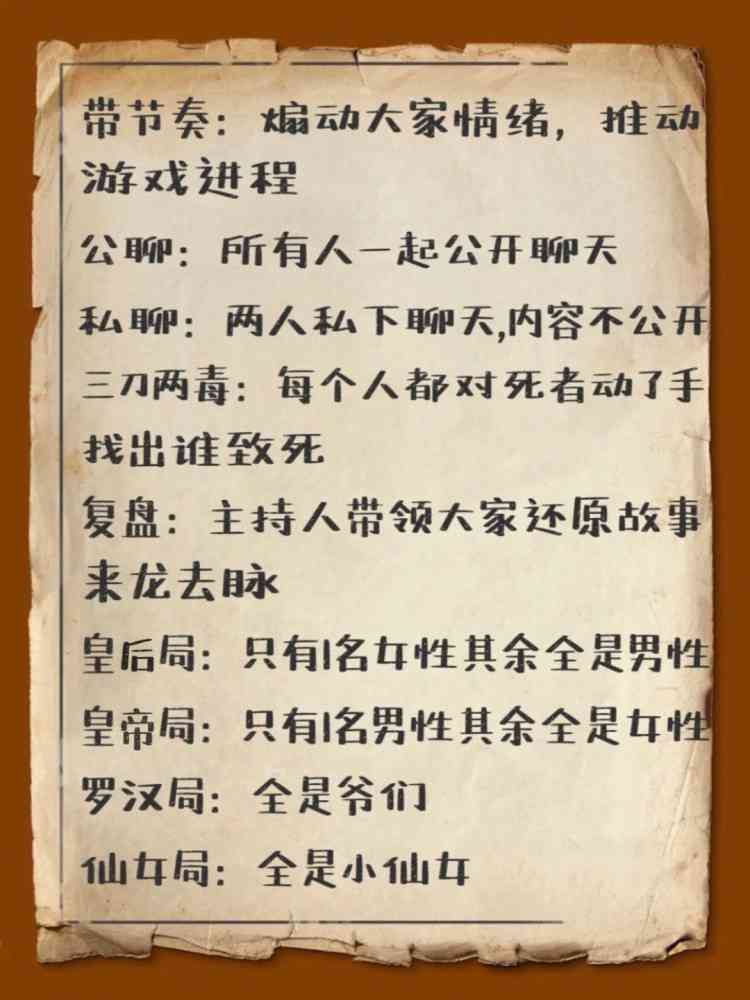 带节奏：煽动大家情绪，推动
游戏进程
公聊：所有人一起公开聊天
私聊：两人私下聊天,内容不公开
三刀两毒：每个人都对死者动了手
找出谁致死
复盘：主持人带领大家还原故事
来龙去脉
皇后局：只有1名女性其余全是男性
皇帝局：只有1名男性其余全是女性
罗汉局：全是爷们
仙女局：全是小仙女